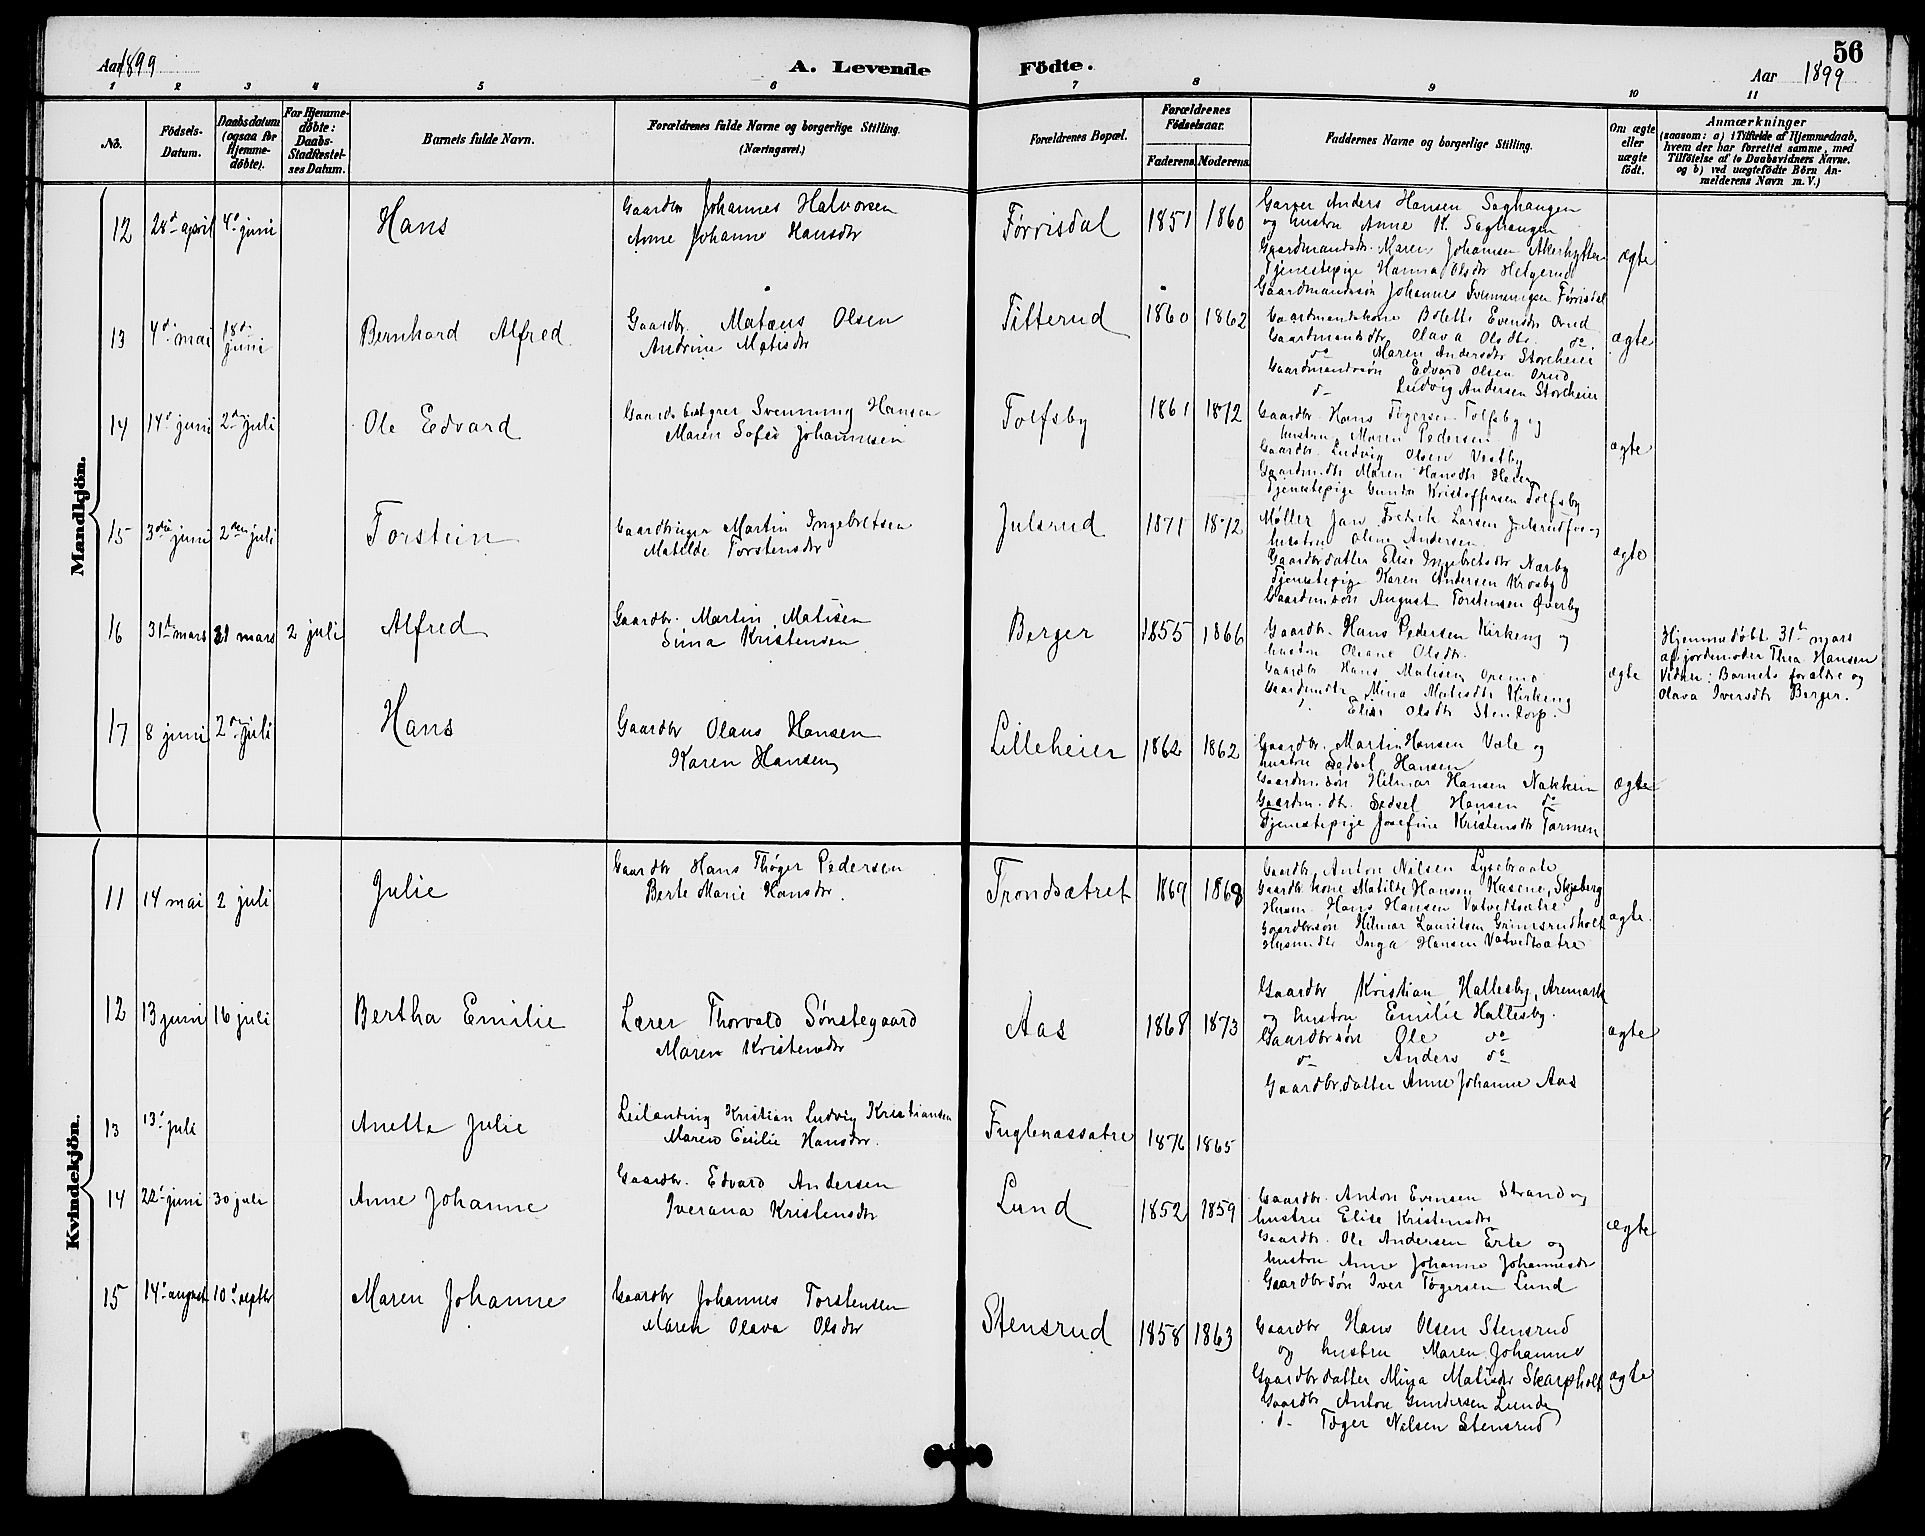 56
Aar 1899
A. Levende Födte.
Aar 1899
1 2 3 4 5 6 7 8 9 10 11
No.
Födsels-Datum.
Daabsdatum (ogsaa for Hjemmedøbte).
For Hjemmedøbte: Daabs-Stadfæstelses Datum.
Barnets fulde Navn.
Forældrenes fulde Navne og borgerlige Stilling. (Næringsvei.)
Forældrenes Bopæl.
Forældrenes Födselsaar.
Faderens. Moderens.
Faddernes Navne og borgerlige Stilling.
Om ægte eller uægte födt.
Anmærkninger
(saasom: a) i Tilfælde af Hjemmedaab, hvem der har forrettet samme, med Tilföielse af to Daabsvidners Navne, og b) ved uægtefödte Börn Anmelderens Navn m. V.)
Mandkjön.
12 28d april 4d juni Hans
Gaardbr Johannes Halvorsen
Anne Johanne Hansdtr
Førrisdal 1851 1860
Garver Anders Hansen Saghaugen
og hustru Anne K. Saghaugen
Gaardmandsdtr. Maren Johansen
Tjenestepige Hanna Olsdtr Helgerud
Gaardmandssøn Johannes Svenningsen Førrisdal
ægte
13 4d mai 18d juni Bernhard Alfred
Gaardbr. Matæus Olsen
Andrine Matisdtr
Titterud 1860 1862
Gaardmandskone Bolette Evensdtr Orud
Gaardmandsdtr Olava Olsdtr do
do Maren Andersdtr Storeheier
Gaardmandssøn Edvard Olsen Orud
d- Ludvig Andersen Storeheier
ægte
14 14d juni 2d juli Ole Edvard
Svenning Hansen
Maren Sofie Johannesen
Tolfsby 1861 1872
Gaardbr. Hans Tøgersen Tolfsby og
hustru Maren Pedersen
Gaardbr. Ludvig Olsen Vestby
Gaardm.dtr Maren Hansdtr Heier
Tjenestepige Gunda Kristoffersen Tolfsby
ægte
15 3die juni 2den juli Torstein
Gaardbruger Martin Ingebretsen
Matilde Torstensdtr
Julsrud 1871 1872
Møller Jan Fredrik Larsen Julsrudfos og
hustru Oline Andersen
Gaardbrdatter Elise Ingebretsdtr Nærby
Tjenestepige Karen Andersen Krosby
Gaardm.søn August Torstensen Øverby
ægte
16 31te mars 31 mars 2 juli Alfred
Gaardbr. Martin Matisen
Sina Kristensen
Berger 1855 1866
Gaardbr. Hans Pedersen Kirkeng og
hustru Oleane Olsdtr.
Gaardbr Hans Matisen
Gaardmdtr Mina Matisdtr Kirkeng
Elise Olsdtr Stentorp.
ægte
Hjemmedøbt 31te mars
af jordemoder Thea Hansen
Vidner: Barnets forældre og
Olava Iversdtr Berger.
17 8 juni 2den juli Hans
Gaardbr Olaus Hansen
Karen Hansen
Lilleheier 1862 1862
Gaardbr. Martin Hansen Vale og
hustru Sedsel Hansen
Gaardm.søn Hilmar Hansen Nakkim
Gaardm.dtr. Sedsel Hansen do
Tjenestepige Josefine Kristensdtr Tormen
ægte
Kvindekjön.
11 14 mai 2 juli Julie
Gaardbr Hans Thøger Pedersen
Berte Marie Hansdtr.
Trondsætret 1869 1868
Gaardbr. Anton Nilsen Lysebraate
Gaardbr.kone Matilde Hansen Kasene, Skjeberg
Husm. Hans Hansen Vatvedtsætre
Gaardbrsøn Hilmar Lauritsen Grimsrudholt
Husmdtr Inga Hansen Vatvedtsætre
ægte.
12 13 juni 16 juli Bertha Emilie
Lærer Thorvald Sønstegaard
Maren Kristensdtr
Aas 1868 1873
Gaardbr Kristian Hallesby, Aremark
og hustru Emilie Hallesby.
Gaardbrsøn Ole do
d- Anders do
Gaardbr.datter Anne Johanne Aas
ægte
13 13d juli Anette Julie
Leilænding Kristian Ludvig Kristiansen
Maren Cecilie Hansdtr.
Fuglenassætre 1876 1865
14 22d juni 30 juli Anne Johanne
Gaardbr. Edvard Andersen
Iverana Kristensdtr
Lund 1852 1859
Gaardbr. Anton Evensen Strand og
hustru Elise Kristensdtr
Gaardbr. Ole Andersen Erte og
hustru Anne Johanne Johannesdtr
Gaardbrsøn Iver Tøgersen Lund
ægte
15 14d august 10d septbr Maren Johanne
Gaardbr Johannes Torstensen
Maren Olava Olsdtr
Stensrud 1858 1863
Gaardbr Hans Olsen Stensrud
og hustru Maren Johanne
Gaardbrdatter Mina Matisdtr Skarpholt
Gaardbr Anton Gundersen Lunde
d- Tøger Nilsen Stensrud
ægte